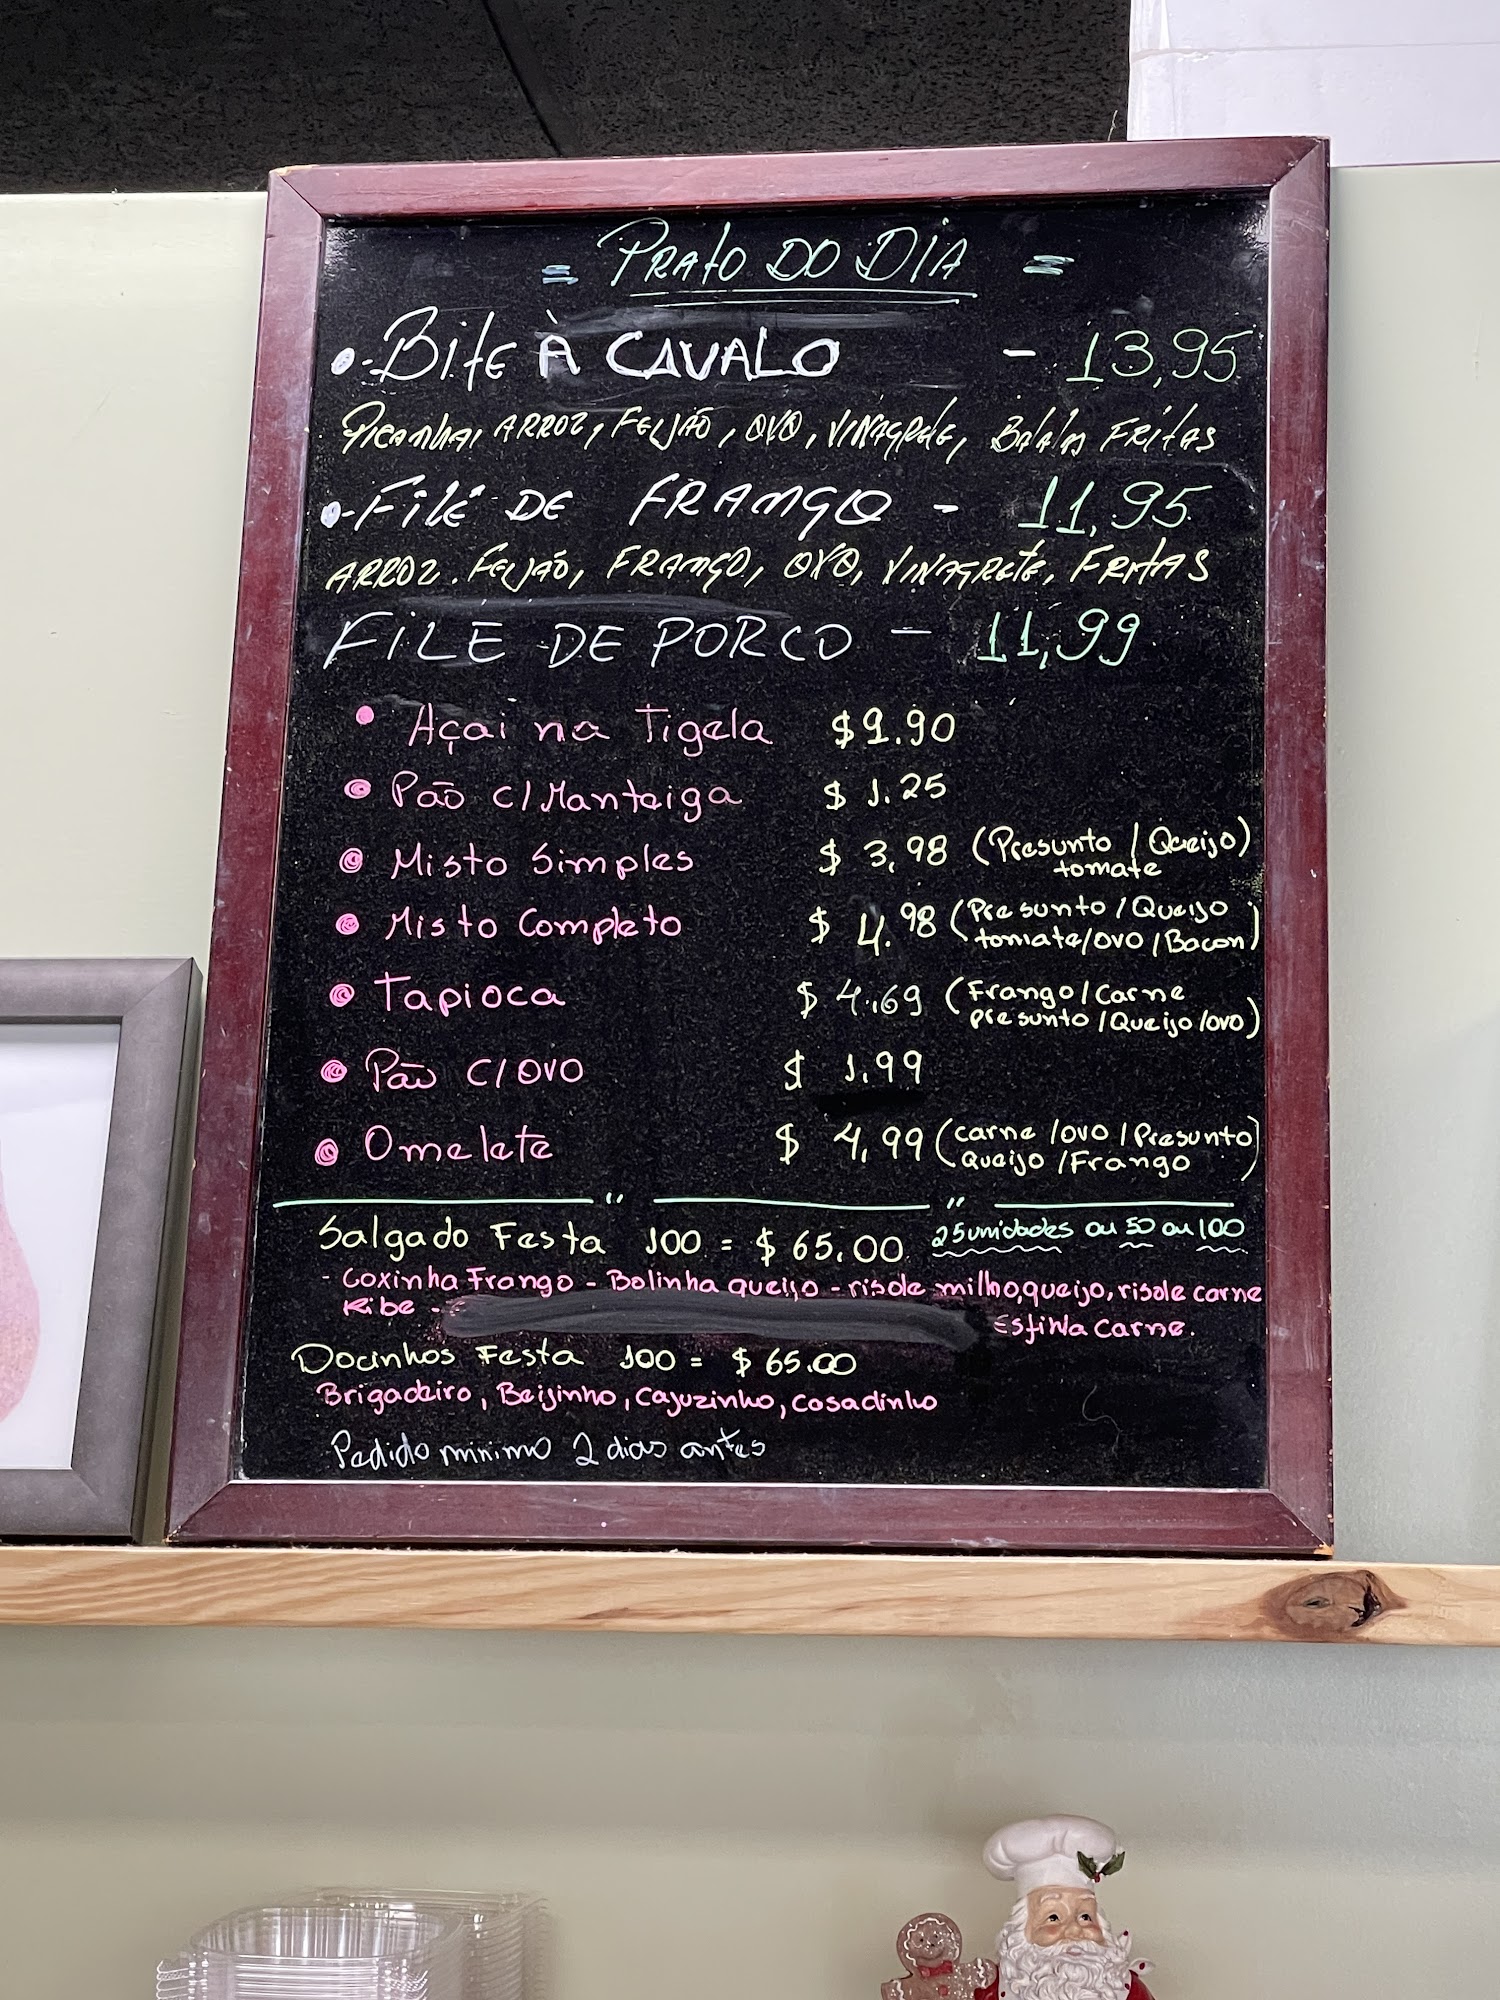 = PRATO DO DIA =
•-BifE À CAVALO - 13,95
Picanha, ARROZ, FEIJÃO, OVO, VINAGRETE, BATATAS FRITAS
•-FilÉ DE FRANGO - 11,95
ARROZ. FEIJÃO, FRANGO, OVO, VINAGRETE, FRITAS
FILE DE PORCO - 11,99
• Açai na Tigela $9.90
• Pão c/Manteiga $1.25
• Misto Simples $3,98 (Presunto / Queijo)
tomate
• Misto Completo $4.98 (Presunto / Queijo
tomate/ovo / Bacon)
• Tapioca $4.69 (Frango / Carne
presunto / Queijo / ovo)
• Pão c/ovo $1.99
• Omelete $4,99 (carne / ovo / Presunto)
Queijo / Frango
Salgado Festa 100 = $65.00 25 unidades ou 50 ou 100
- Coxinha Frango - Bolinha queijo - risole milho,queijo, risole carne
Kibe - Esfirra Carne.
Docinhos Festa 100 = $65.00
Brigadeiro, Beijinho, Cajuzinho, Casadinho
Pedido minimo 2 dias antes